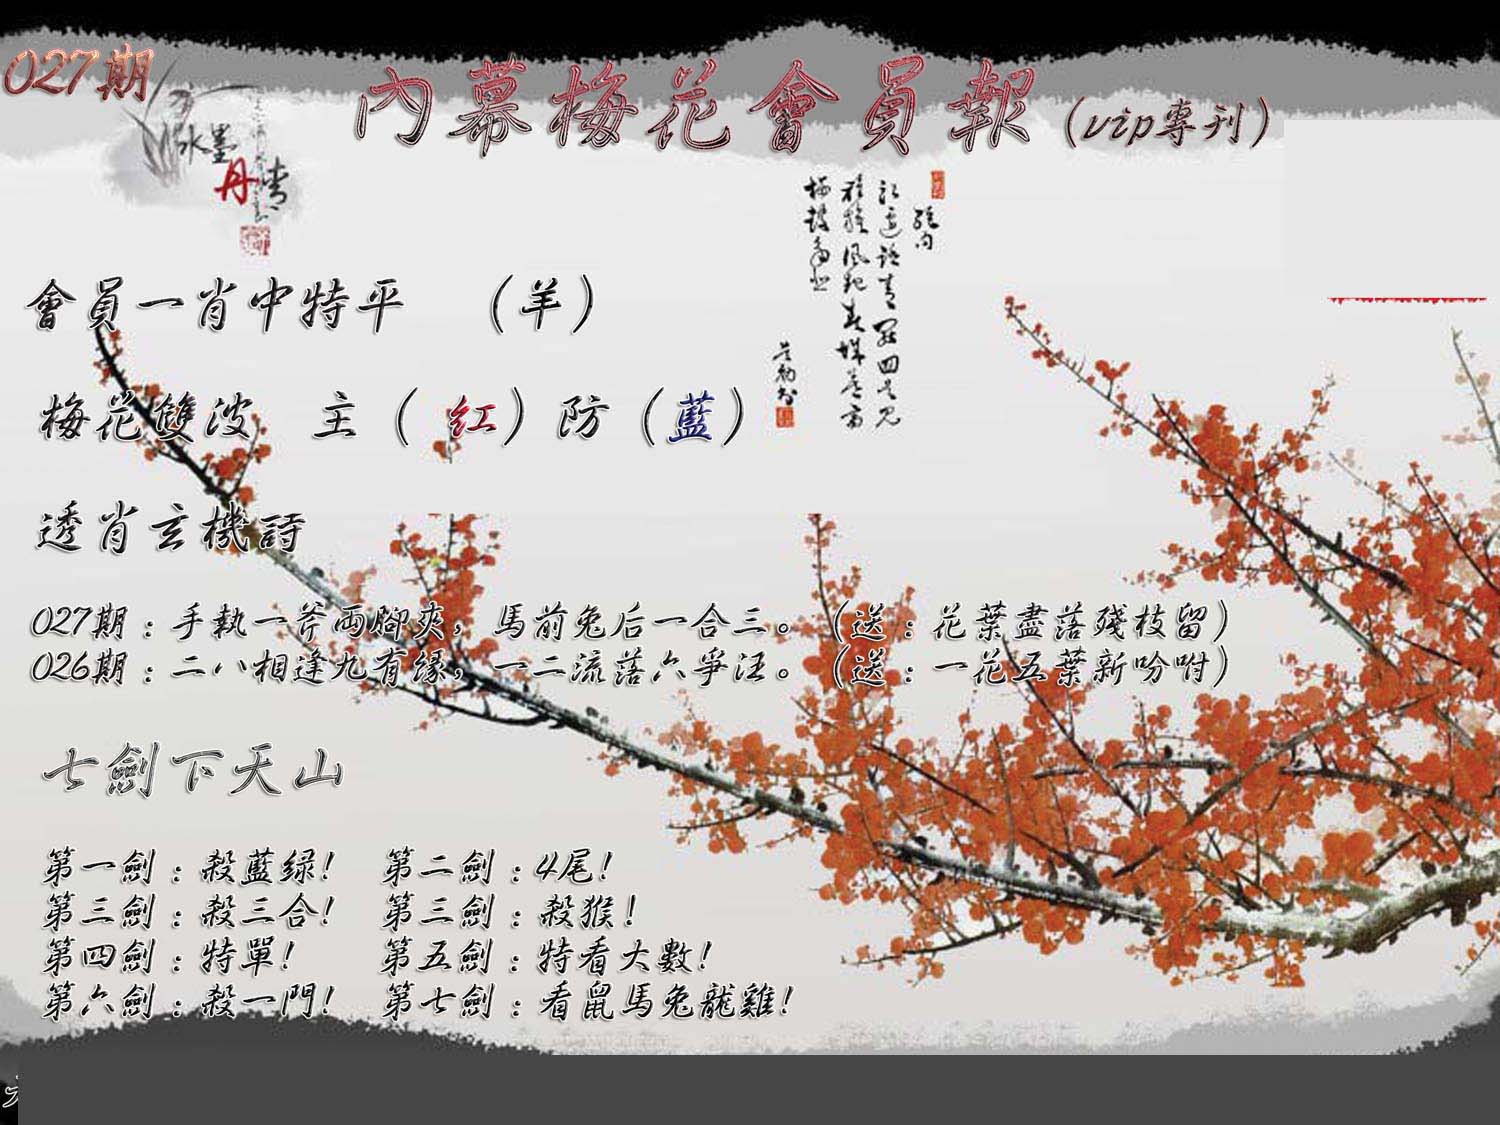 027期
內幕梅花會員報（vip專刊）
水墨
丹青
會員一肖中特平 （羊）
梅花雙波 主（紅）防（藍）
透肖玄機詩
027期：手執一斧両腳夾，馬前兔后一合三。（送：花葉盡落殘枝留）
026期：二八相逢九有缘，一二流落六爭汪。（送：一花五葉新吩咐）
七劍下天山
第一劍：殺藍绿！ 第二劍：4尾！
第三劍：殺三合！ 第三劍：殺猴！
第四劍：特單！ 第五劍：特看大數！
第六劍：殺一門！ 第七劍：看鼠馬兔龍雞！